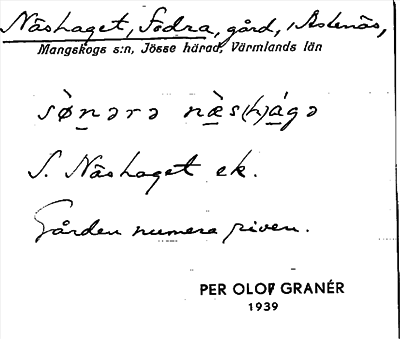 Näshaget, Södra, gård, i Astenäs,
Mangskogs s:n, Jösse härad, Värmlands län
sø̀nərə næ̀s(h)ágə
S. Näshaget ek.
Gården numera riven.
PER OLOF GRANÉR
1939